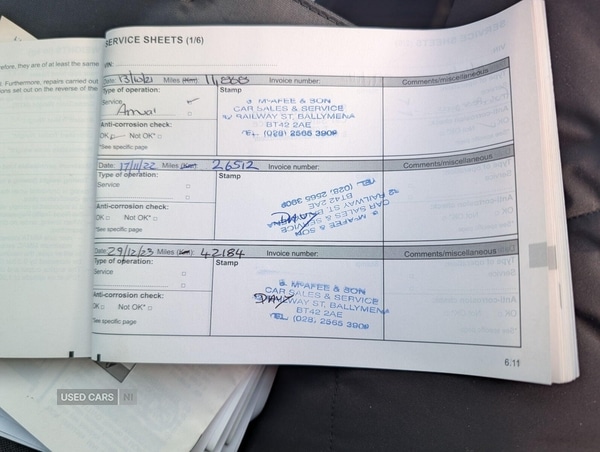 SERVICE SHEETS (1/6)
VIN:
Date: 13/10/21 Miles (Km): 11,868 Invoice number: Comments/miscellaneous
Type of operation: Stamp
Service
Annual
Anti-corrosion check:
OK Not OK*
*See specific page
McAFEE & SON
CAR SALES & SERVICE
RAILWAY ST, BALLYMENA
BT42 2AE
TEL (028) 2565 3909
Date: 17/11/22 Miles (Km): 26512 Invoice number: Comments/miscellaneous
Type of operation: Stamp
Service
Anti-corrosion check:
OK Not OK*
*See specific page
McAFEE & SON
CAR SALES & SERVICE
RAILWAY ST, BALLYMENA
BT42 2AE
TEL (028) 2565 3909
Date: 29/12/23 Miles (Km): 42184 Invoice number: Comments/miscellaneous
Type of operation: Stamp
Service
Anti-corrosion check:
OK Not OK*
*See specific page
McAFEE & SON
CAR SALES & SERVICE
RAILWAY ST, BALLYMENA
BT42 2AE
TEL (028) 2565 3909
6.11
refore, they are of at least the same
Furthermore, repairs carried out
ons set out on the reverse of the
USED CARS NI